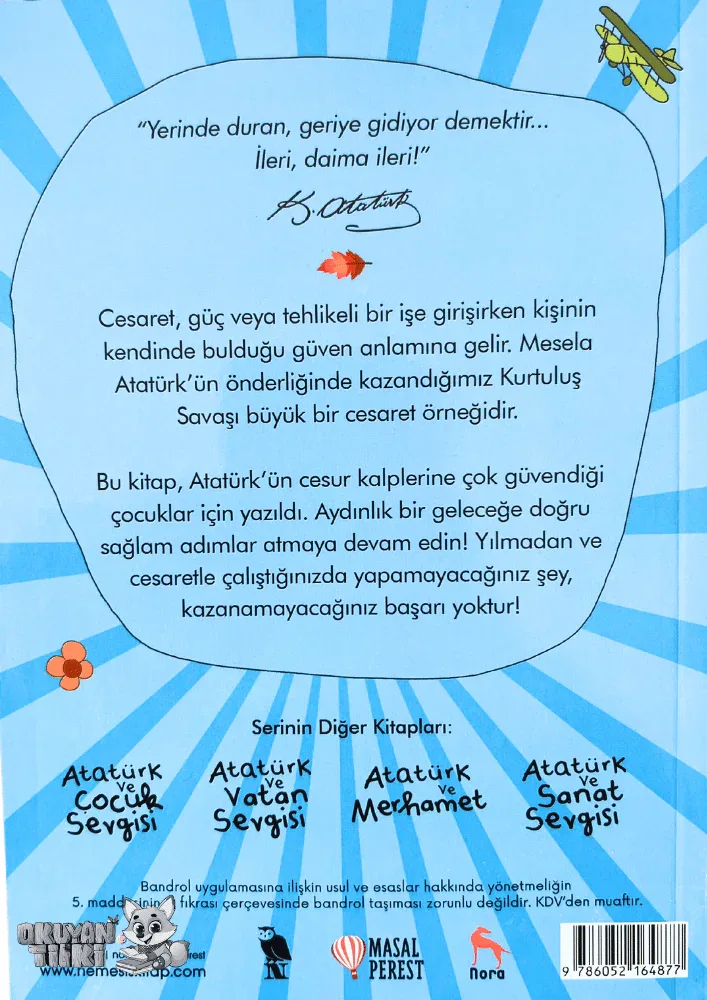 “Yerinde duran, geriye gidiyor demektir...
İleri, daima ileri!”
K. Atatürk
Cesaret, güç veya tehlikeli bir işe girişirken kişinin
kendinde bulduğu güven anlamına gelir. Mesela
Atatürk’ün önderliğinde kazandığımız Kurtuluş
Savaşı büyük bir cesaret örneğidir.
Bu kitap, Atatürk’ün cesur kalplerine çok güvendiği
çocuklar için yazıldı. Aydınlık bir geleceğe doğru
sağlam adımlar atmaya devam edin! Yılmadan ve
cesaretle çalıştığınızda yapamayacağınız şey,
kazanamayacağınız başarı yoktur!
Serinin Diğer Kitapları:
Atatürk
ve
Çocuk
Sevgisi
Atatürk
ve
Vatan
Sevgisi
Atatürk
ve
Merhamet
Atatürk
ve
Sanat
Sevgisi
Bandrol uygulamasına ilişkin usul ve esaslar hakkında yönetmeliğin
5. fıkrası çerçevesinde bandrol taşıması zorunlu değildir. KDV’den muaftır.
OKUYAN
TİLKİ
N
MASAL
PEREST
nora
9 786052 164877